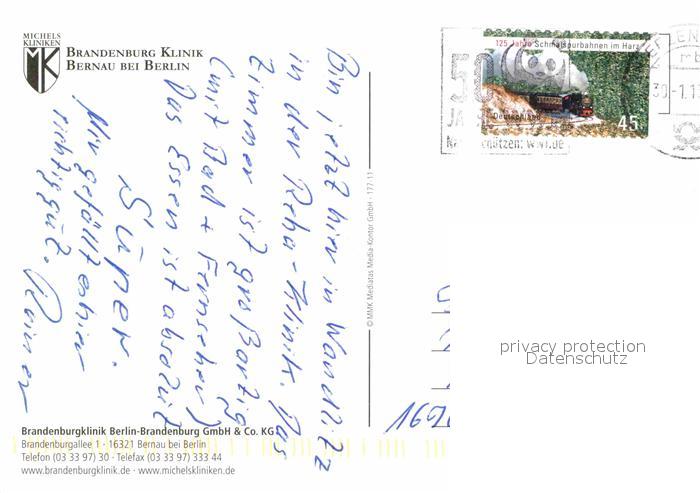 MICHELS
KLINIKEN
MK
BRANDENBURG KLINIK
BERNAU BEI BERLIN
Bin jetzt hier in Wandlitz
in der Reha-Klinik. Das
Zimmer ist großartig
(mit Bad + Fernseher)
Das Essen ist absolut
Super.
Mir gefällt es hier
richtig gut. Rainer
Brandenburgklinik Berlin-Brandenburg GmbH & Co. KG
Brandenburgallee 1 · 16321 Bernau bei Berlin
Telefon (03 33 97) 30 · Telefax (03 33 97) 333 44
www.brandenburgklinik.de · www.michelskliniken.de
© MMK Mediatas Media-Kontor GmbH · 177-11
125 Jahre Schmalspurbahnen im Harz
Deutschland
45
50
privacy protection
Datenschutz